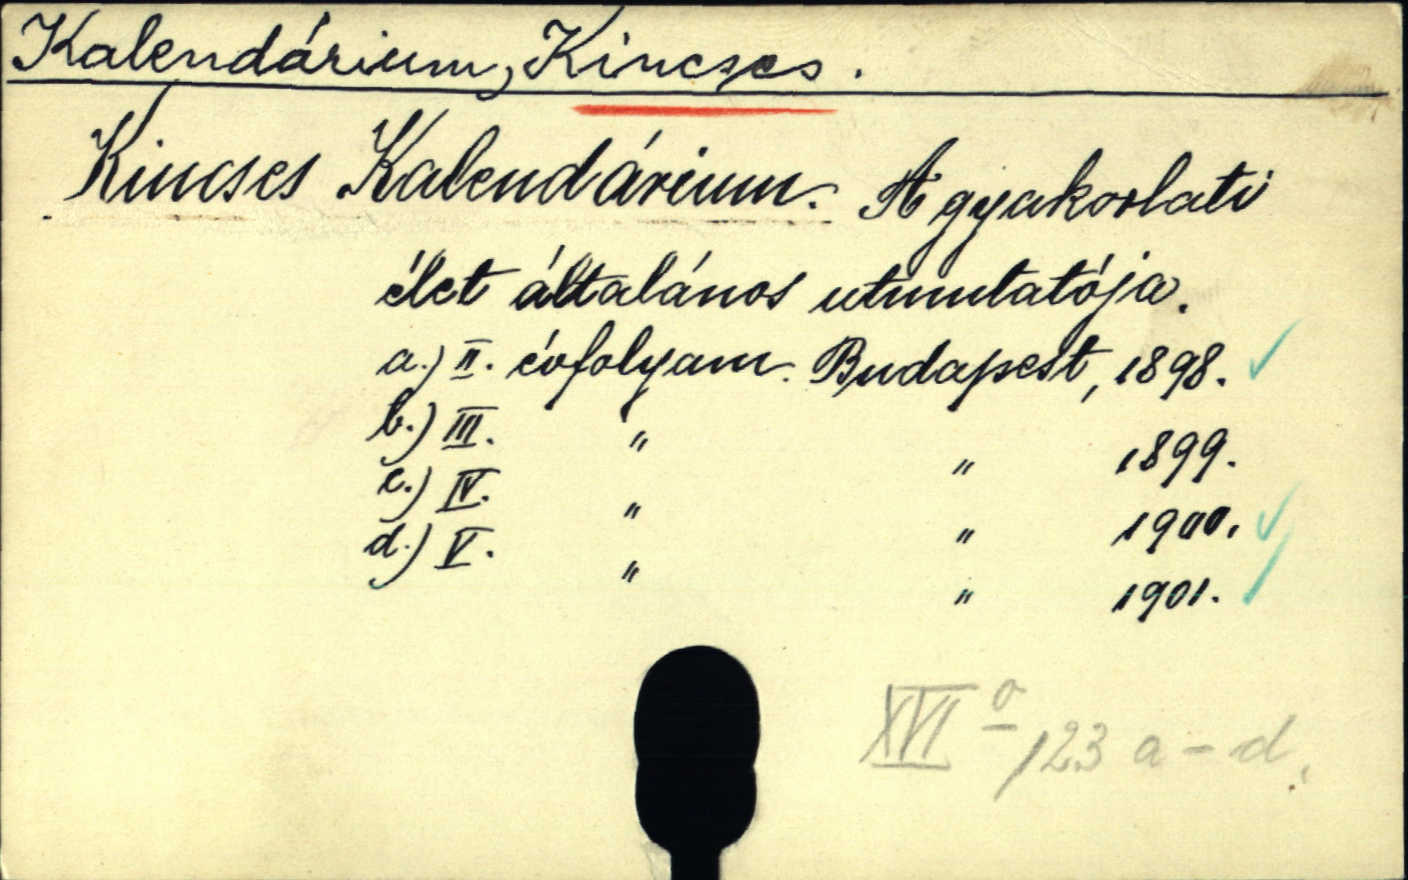 Kalendárium, Kincses.
Kincses Kalendárium. A gyakorlati
élet általános utmutatója.
a.) II. évfolyam. Budapest, 1898. ✓
b.) III. " " 1899.
c.) IV. " " 1900. ✓
d.) V. " " 1901. ✓
XVI o /23 a-d.